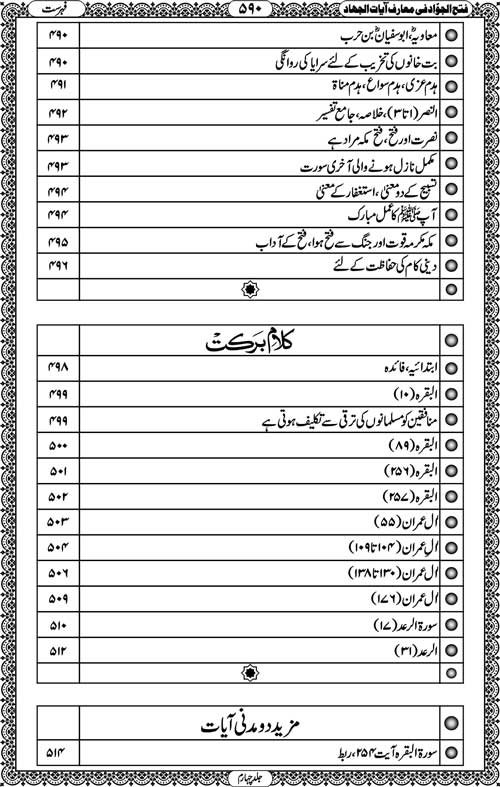 فتح الجوّاد فی معارف آیات الجهاد ۵۹۰ فہرست
معاویہؓ، ابوسفیانؓ بن حرب ۴۹۰
بت خانوں کی تخریب کے لئے سرایا کی روانگی ۴۹۰
ہدم عزی، ہدم سواع، ہدم مناۃ ۴۹۱
النصر (۱ تا ۳)، خلاصہ، جامع تفسیر ۴۹۲
نصرت اور فتح، فتح مکہ مراد ہے ۴۹۳
مکمل نازل ہونے والی آخری سورت ۴۹۳
تسبیح کے دو معنیٰ، استغفار کے معنیٰ ۴۹۴
آپ ﷺ کا عمل مبارک ۴۹۴
مکہ مکرمہ قوت اور جنگ سے فتح ہوا، فتح کے آداب ۴۹۵
دینی کام کی حفاظت کے لئے ۴۹۶
کلامِ برکت
ابتدائیہ، فائدہ ۴۹۸
البقرہ (۱۰) ۴۹۹
منافقین کو مسلمانوں کی ترقی سے تکلیف ہوتی ہے ۴۹۹
البقرہ (۸۹) ۵۰۰
البقرہ (۲۵۶) ۵۰۱
البقرہ (۲۵۷) ۵۰۲
اٰل عمران (۵۵) ۵۰۳
اٰل عمران (۱۰۴ تا ۱۰۹) ۵۰۴
اٰل عمران (۱۳۰ تا ۱۳۸) ۵۰۶
اٰل عمران (۱۷۶) ۵۰۹
سورۃ الرعد (۱۷) ۵۱۰
الرعد (۳۱) ۵۱۲
مزید دو مدنی آیات
سورۃ البقرہ آیت ۲۵۴، ربط ۵۱۴
جلد چہارم